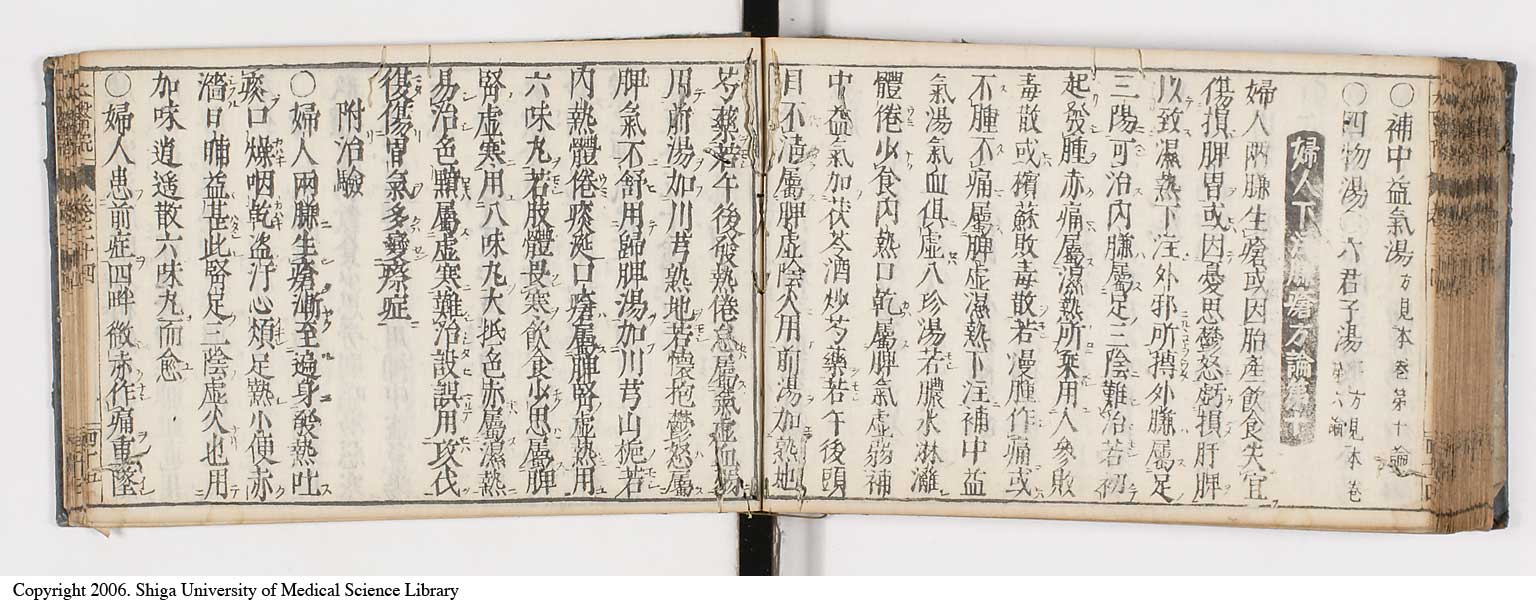 〇補中益氣湯 方見本卷第十論
〇四物湯〇六君子湯 方見本卷第六論
婦人下注臁瘡方論第十
婦人兩臁生瘡或因胎產飲食失宜
傷損脾胃或因憂思鬱怒虧損肝脾
以致濕熱下注外邪所搏外臁屬足
三陽可治內臁屬足三陰難治若初
起發腫赤痛屬濕熱所乘用人參敗
毒散或檳蘇敗毒散若漫腫作痛或
不腫不痛屬脾虛濕熱下注補中益
氣湯氣血俱虛八珍湯若膿水淋灕
體倦少食內熱口乾屬脾氣虛弱補
中益氣加茯苓酒炒芍藥若午後頭
目不清屬脾虛陰火用前湯加熟地
芍藥若午後發熱倦怠屬氣虛血
用前湯加川芎熟地若懷抱鬱怒屬
脾氣不舒用歸脾湯加川芎山梔若
內熱體倦痰涎口瘡屬脾腎虛熱用
六味丸若肢體畏寒飲食少思屬脾
腎虛寒用八味丸大抵色赤屬濕熱
易治色黯屬虛寒難治設誤用攻伐
復傷胃氣多變瘵症
附治驗
〇婦人兩臁生瘡漸至遍身發熱吐
痰口燥咽乾盜汗心煩足熱小便赤
濇日晡益甚此腎足三陰虛火也用
加味逍遙散六味丸而愈
〇婦人患前症四畔微赤作痛重墜